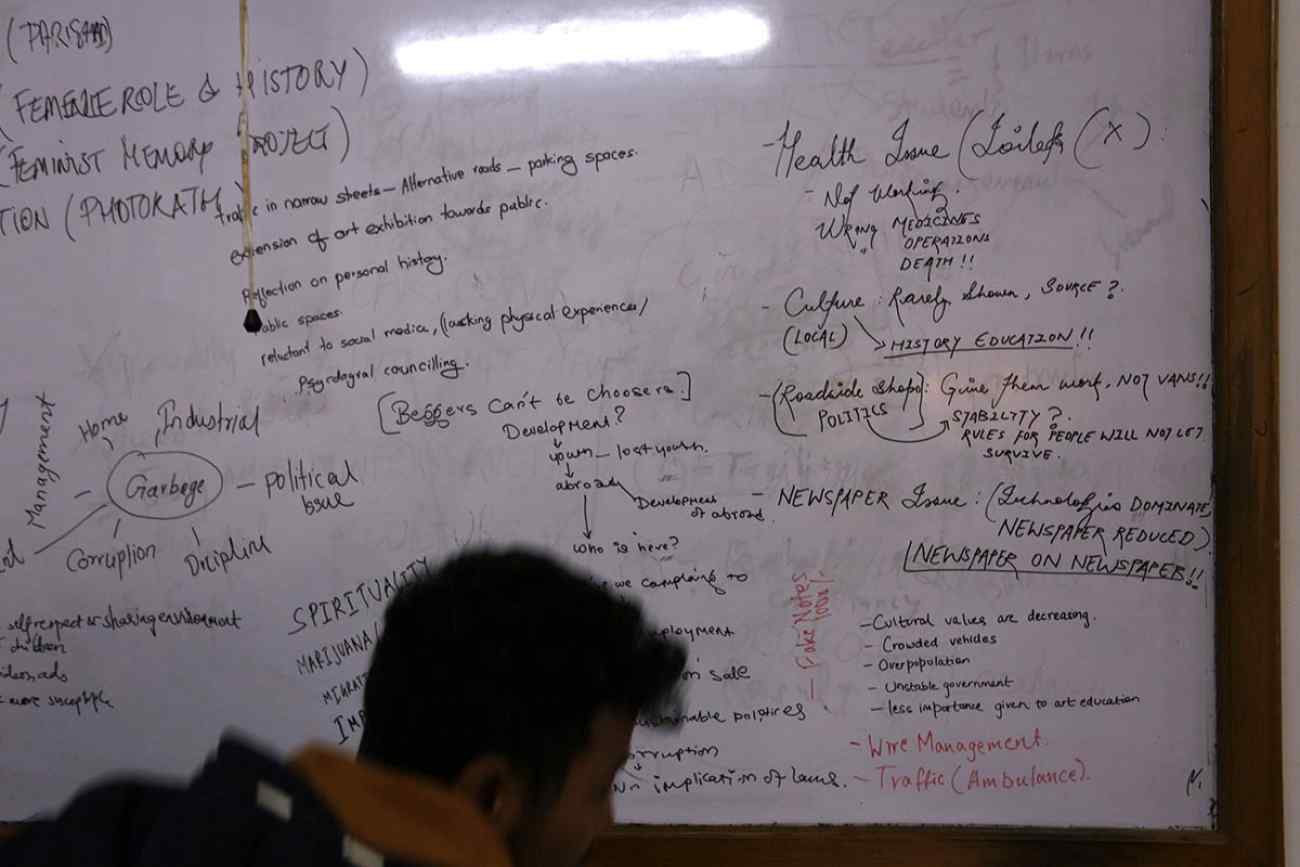 (PARISAD)
(FEMININE ROLE & HISTORY)
(FEMINIST MEMORY PROJECT)
TION (PHOTOKATH
Traffic in narrow streets - Alternative roads - parking spaces.
Extension of art exhibition towards public.
Reflection on personal history.
Public spaces.
reluctant to social medica, (lacking physical experiences/
Psycological councilling.
[Beggers Can't be Choosers.]
Development?
youth - lost youth.
abroad
Development of abroad.
Who is here?
we complaing to
ployment
sale
sustainable politics
corruption
implication of laws.
Management
Home
Industrial
Garbege
- political Issue
Corruption
Dicipline
self respect or sharing environment
children
ads
more susceptible
SPIRITUALITY
MARIJUANA/
MIGRAT
IMP
- Health Issue (Toilets (X):
- Not Working
Wrong MEDICINES
OPERATIONS
DEATH!!
- Culture: Rarely Shown, SOURCE?.
(LOCAL)
HISTORY EDUCATION!!
- (Roadside Shops]: Give them work, NOT VANS!!
POLITICS
STABILITY?.
RULES FOR PEOPLE WILL NOT LET
SURVIVE.
- NEWSPAPER Issue: (Technologies DOMINATE,
NEWSPAPER REDUCED).
NEWSPAPER ON NEWSPAPER!!
- Fake Notes
- Cultural values are decreasing.
- Crowded vehicles
- Overpopulation
- Unstable government
- less importance given to art education
- Wire Management.
- Traffic (Ambulance).